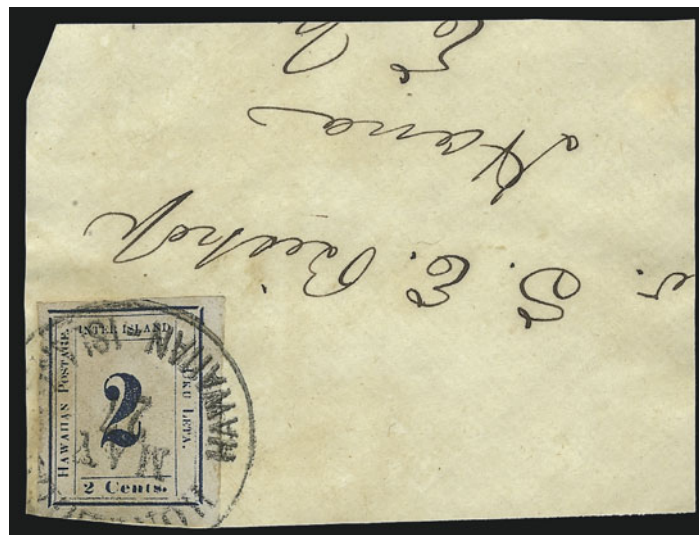 ev. S. E. Bishop
Hana
E.
INTER ISLAND
HAWAIIAN POSTAGE.
UKU LETA.
2
2 Cents.
HAWAIIAN ISL
MAY
27